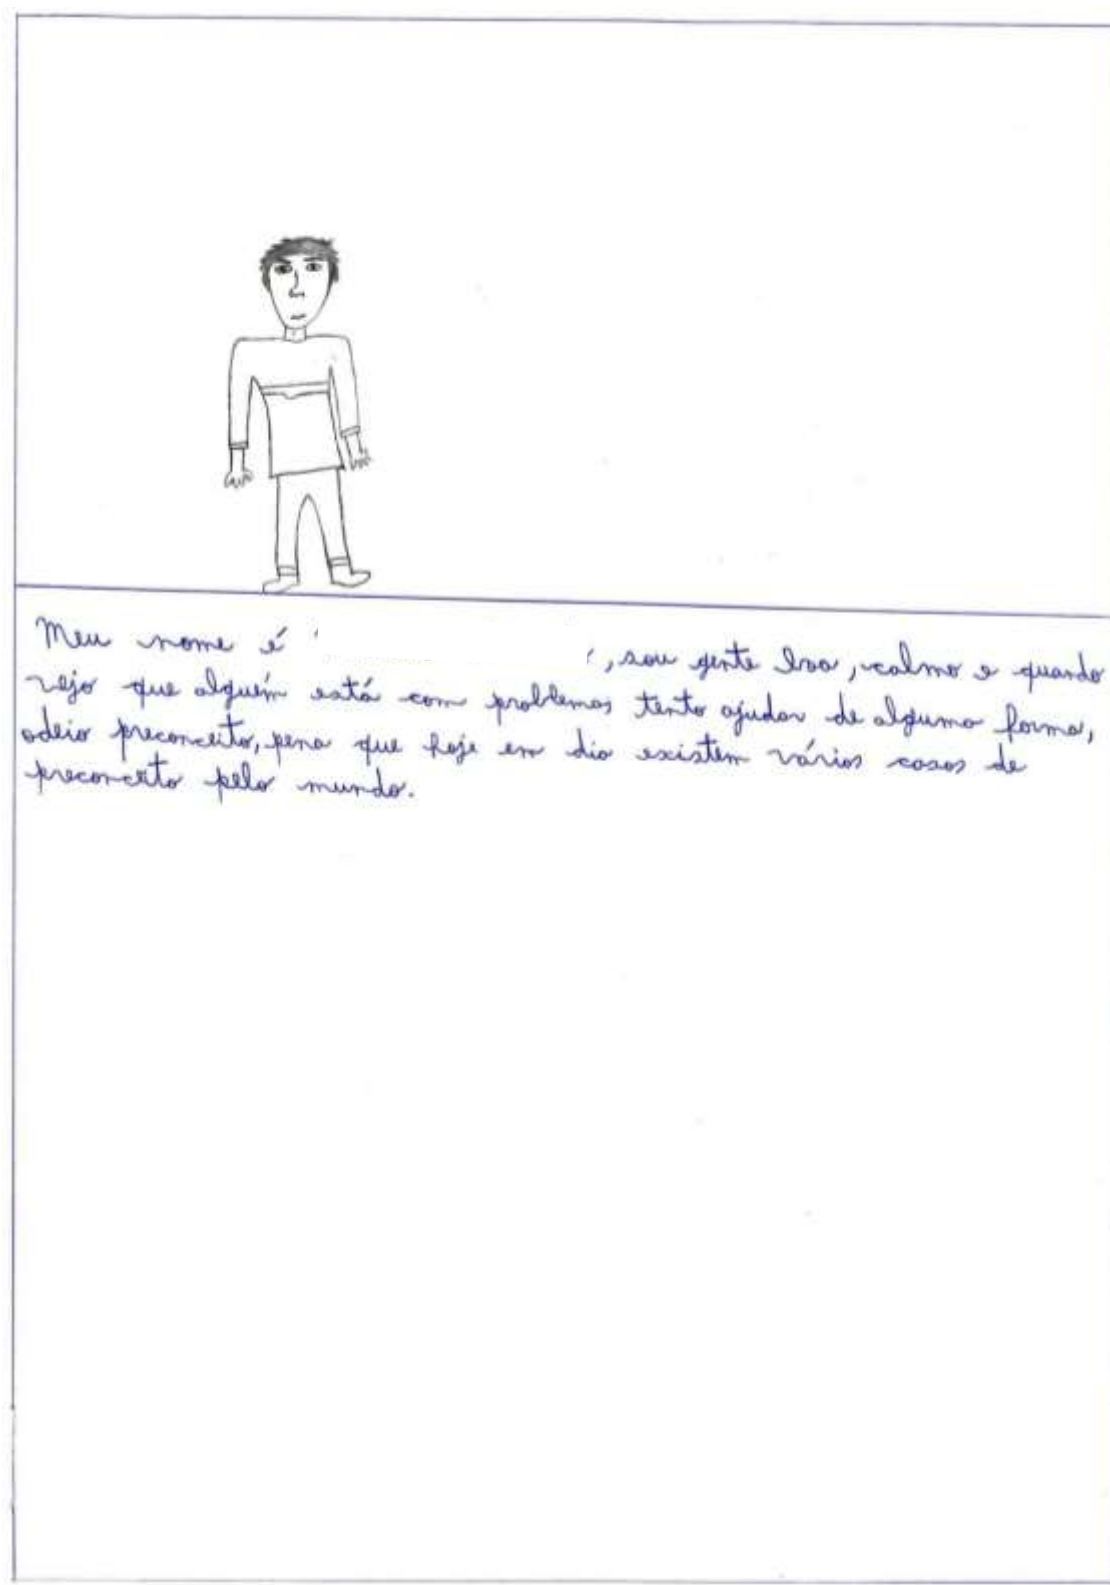 Meu nome é , sou gente boa, calmo e quando
vejo que alguém está com problemas tento ajudar de alguma forma,
odeio preconceito, pena que hoje em dia existem vários casos de
preconceito pelo mundo.